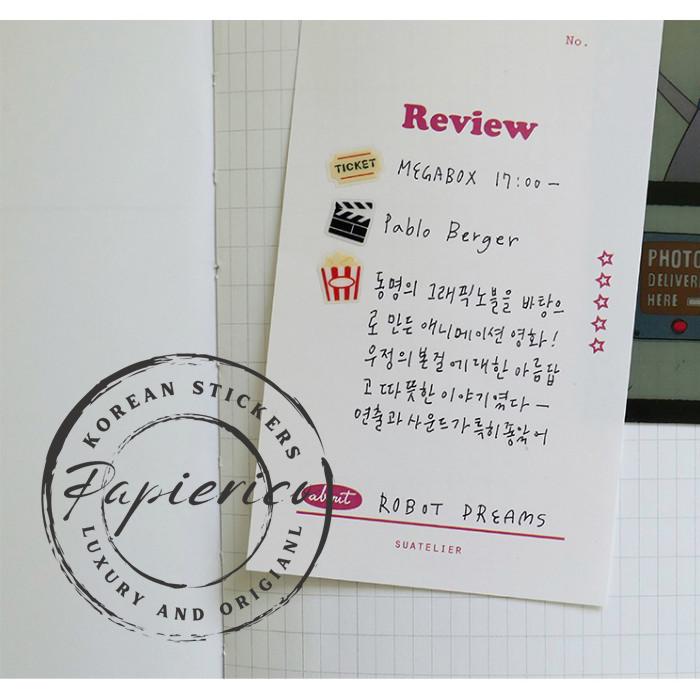 No.
Review
TICKET
MEGABOX 17:00 –
Pablo Berger
동명의 그래픽노블을 바탕으
로 만든 애니메이션 영화!
우정의 본걸에 대한 아름답
고 따뜻한 이야기였다 –
연출과 사운드가 특히 좋았어
about
ROBOT DREAMS
SUATELIER
PHOTO
DELIVER
HERE
KOREAN STICKERS
Papierica
LUXURY AND ORIGIANL